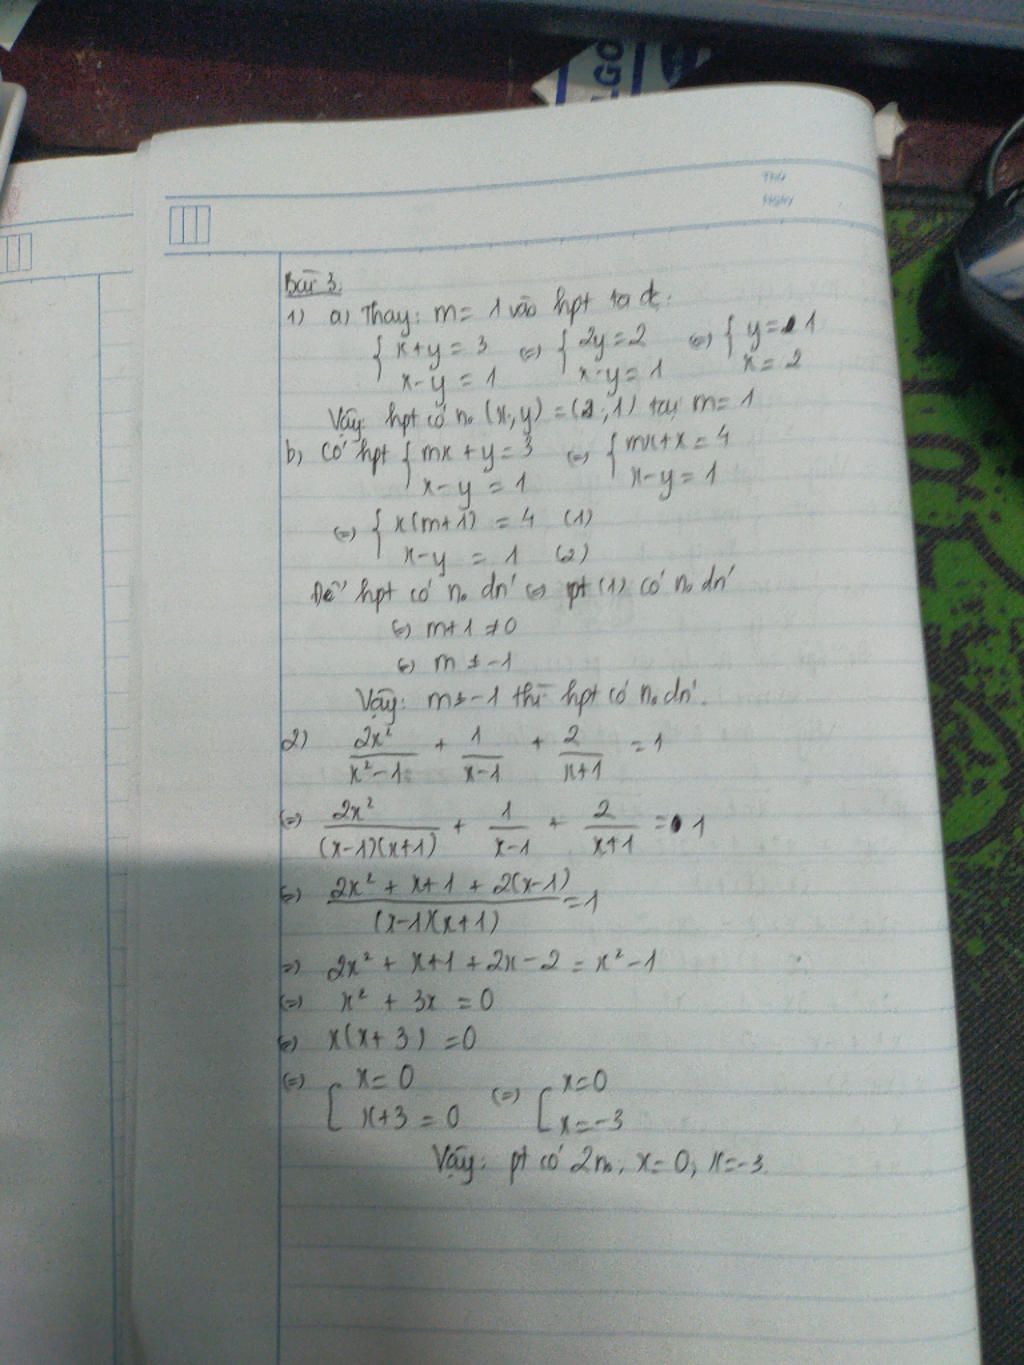 LGO
THỨ
NGÀY
Bài 3:
1) a) Thay: m = 1 vào hpt ta đc:
{ x+y = 3 (=) { 2y = 2 (=) { y = 1
x-y = 1 x-y = 1 x = 2
Vậy: hpt có no (x;y) = (2;1) tại m = 1
b, Có hpt { mx + y = 3 (=) { mx+x = 4
x-y = 1 x-y = 1
(=) { x(m+1) = 4 (1)
x-y = 1 (2)
Để hpt có no dn' (=) pt (1) có no dn'
(=) m+1 ≠ 0
(=) m ≠ -1
Vậy: m ≠ -1 thì hpt có no dn'.
2) 2x²/(x²-1) + 1/(x-1) + 2/(x+1) = 1
(=) 2x²/((x-1)(x+1)) + 1/(x-1) + 2/(x+1) = 1
(=) (2x² + x+1 + 2(x-1))/((x-1)(x+1)) = 1
=) 2x² + x+1 + 2x-2 = x²-1
(=) x² + 3x = 0
(=) x(x+3) = 0
(=) [ x = 0 (=) [ x = 0
x+3 = 0 x = -3
Vậy: pt có 2no, x = 0, x = -3.